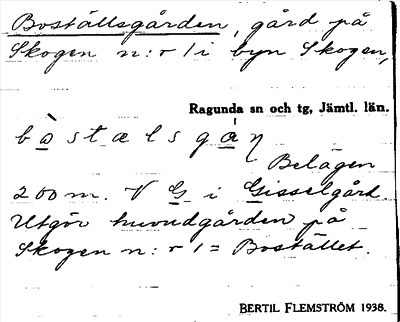 Boställsgården, gård på
Skogen n:r 1 i byn Skogen,
Ragunda sn och tg, Jämtl. län.
bòstælsgáɳ
Belägen
200 m. V G i Gisselgård.
Utgör huvudgården på
Skogen n:r 1 = Bostället.
BERTIL FLEMSTRÖM 1938.